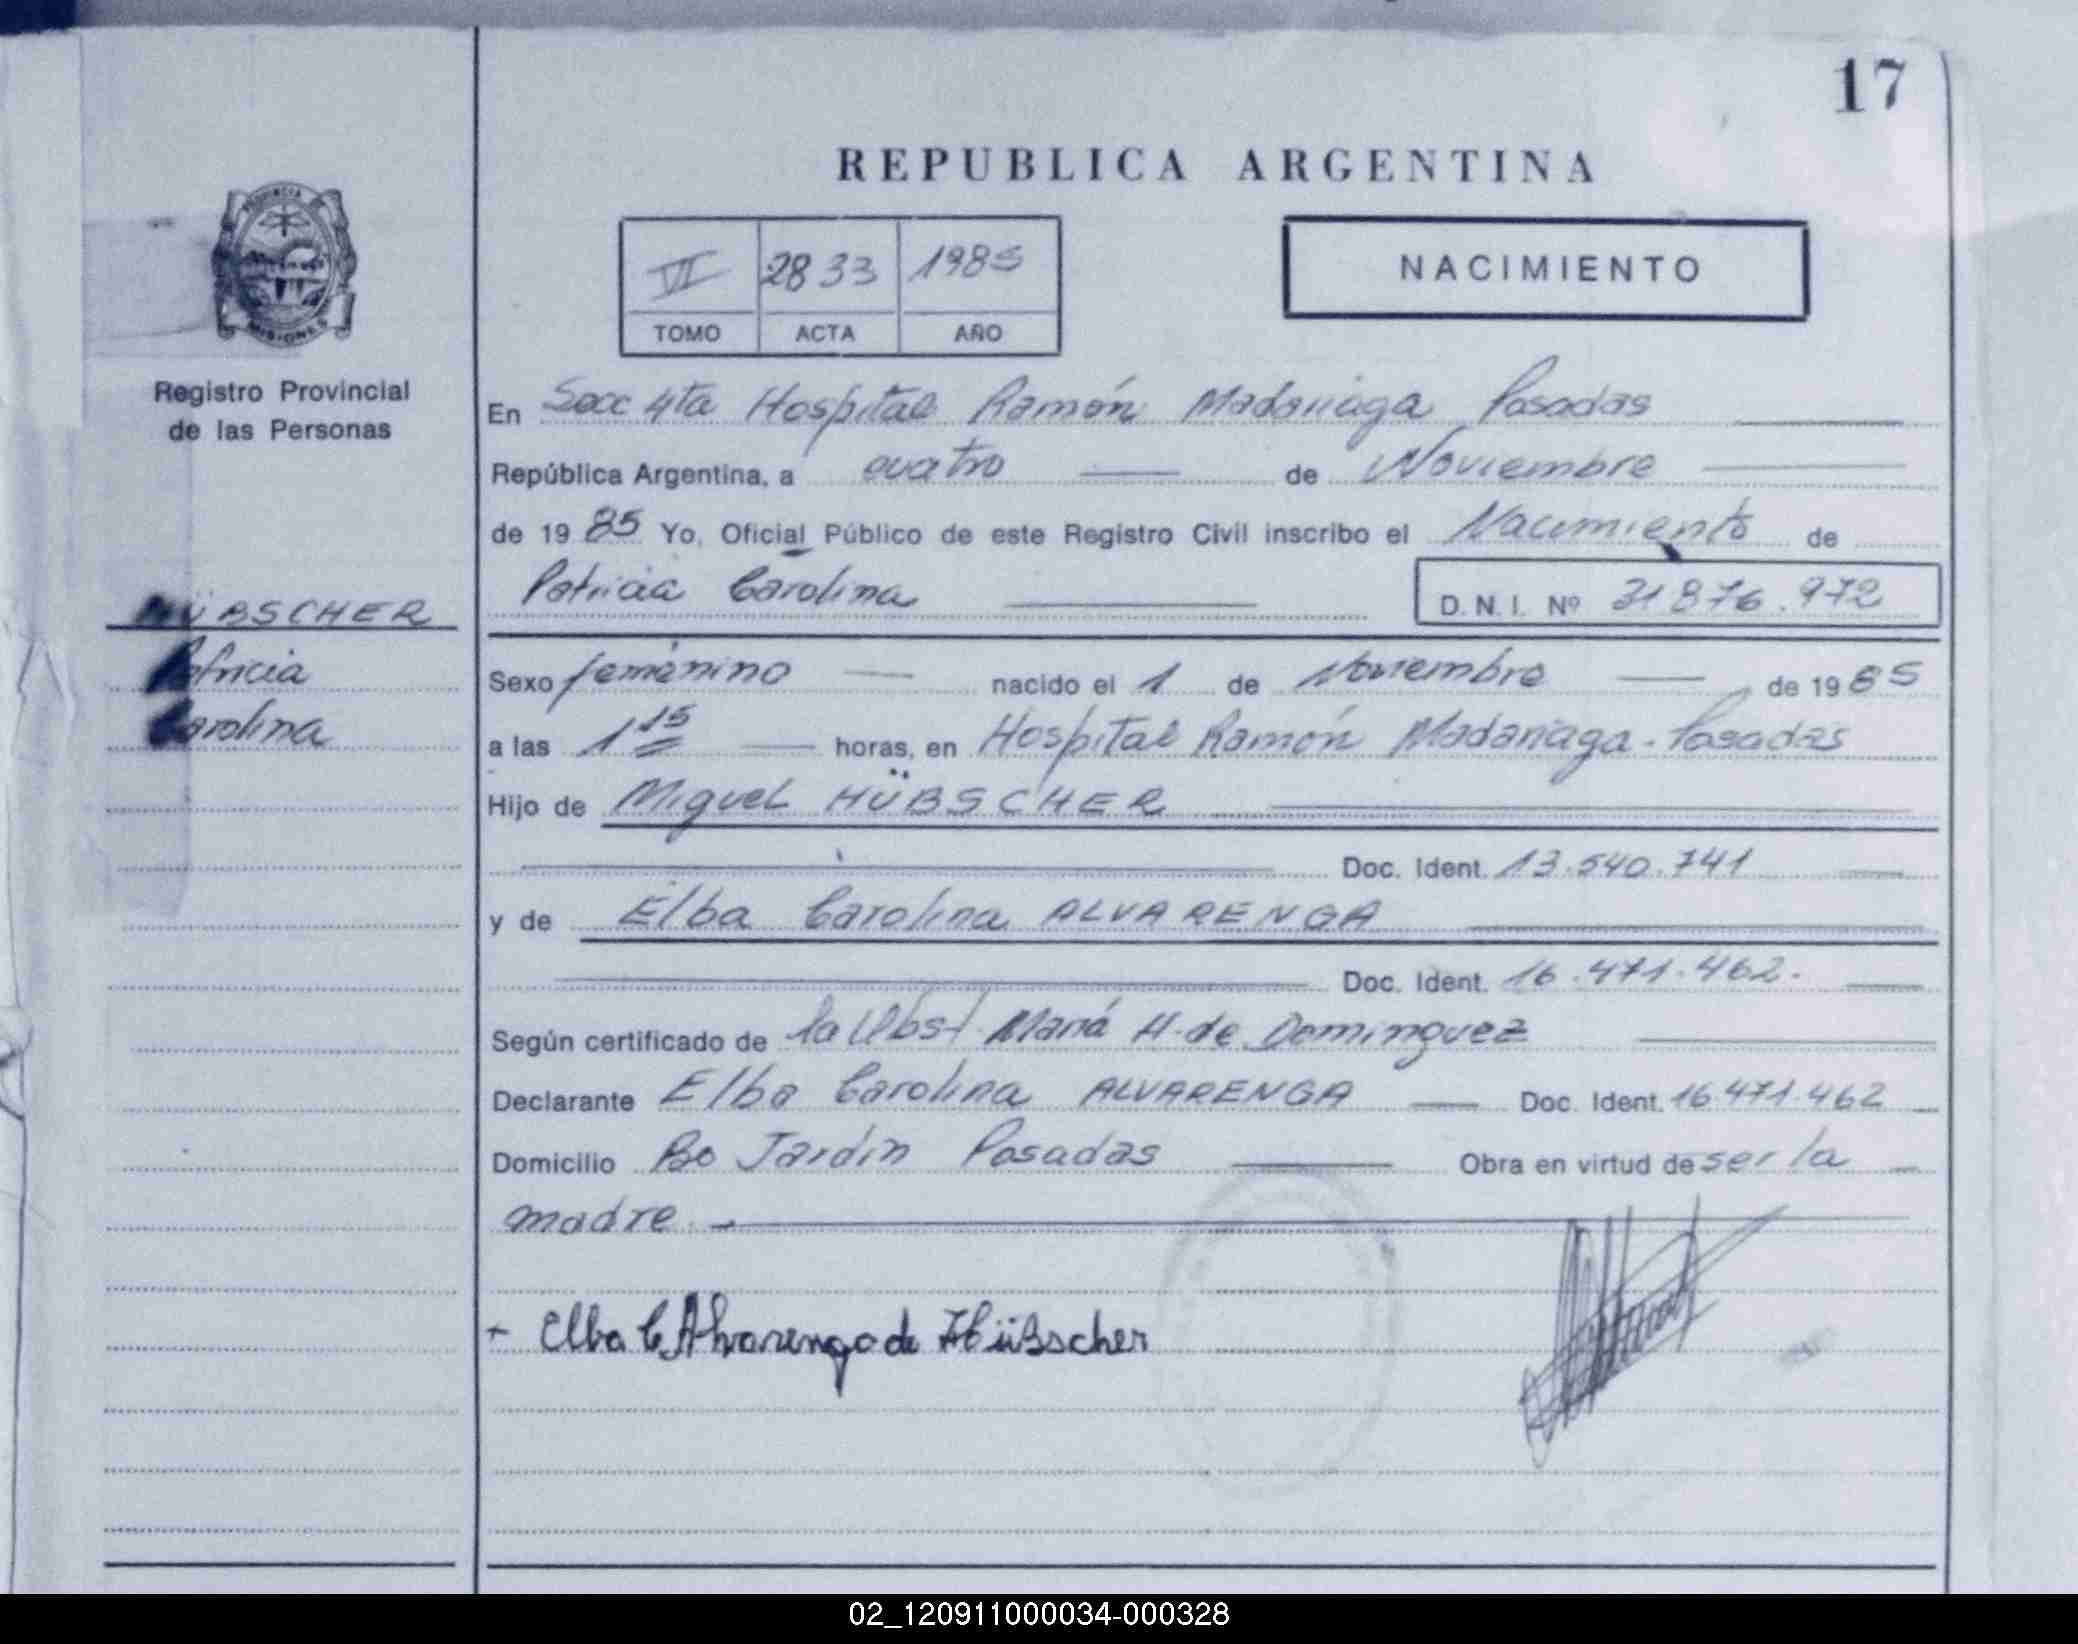 17
REPUBLICA ARGENTINA
PROVINCIA DE
MISIONES
Registro Provincial
de las Personas
HÜBSCHER
Patricia
Carolina
VI 2833 1985
TOMO ACTA AÑO
NACIMIENTO
En Secc 4ta Hospital Ramón Madariaga Posadas
República Argentina, a cuatro de Noviembre
de 1985 Yo, Oficial Público de este Registro Civil inscribo el Nacimiento de
Patricia Carolina D.N.I. Nº 31876.972
Sexo femenino nacido el 1 de Noviembre de 1985
a las 1 15 horas, en Hospital Ramón Madariaga - Posadas
Hijo de Miguel HÜBSCHER
Doc. Ident. 13.540.741
y de Elba Carolina ALVARENGA
Doc. Ident. 16.471.462.
Según certificado de la Obst. María H. de Dominguez
Declarante Elba Carolina ALVARENGA Doc. Ident. 16.471.462
Domicilio Bo Jardín Posadas Obra en virtud de ser la
madre.
Elba C. Alvarenga de Hübscher
02_120911000034-000328